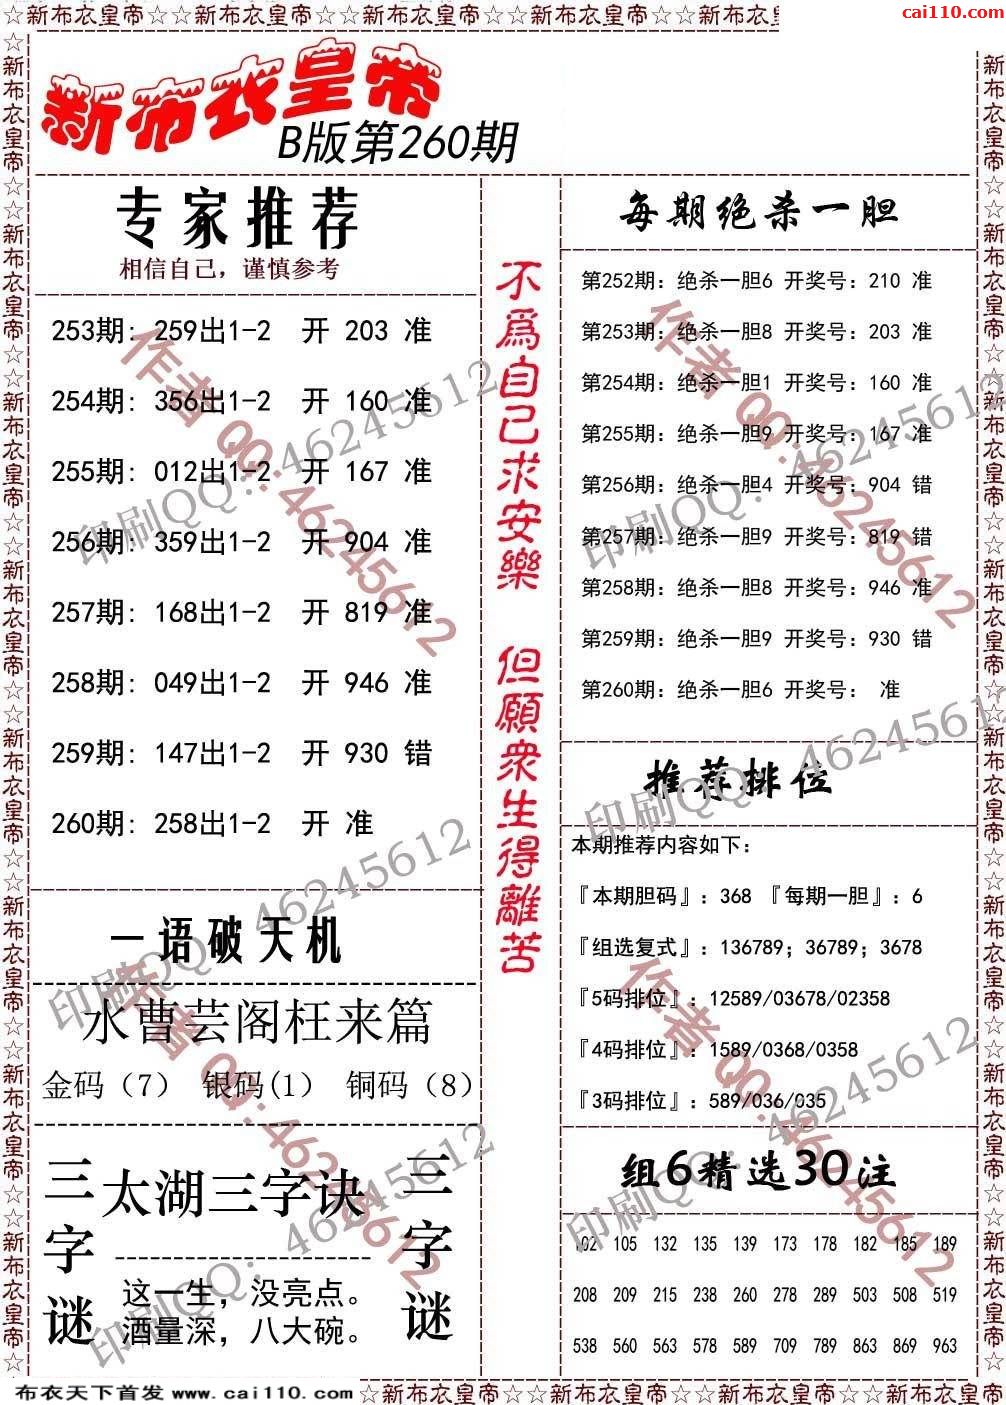 ☆新布衣皇帝☆☆新布衣皇帝☆☆新布衣皇帝☆☆新布衣皇帝☆☆新布衣皇帝☆☆新布衣皇帝
cai110.com
新布衣皇帝
B版第260期
专家推荐
相信自己，谨慎参考
253期: 259出1-2 开 203 准
254期: 356出1-2 开 160 准
255期: 012出1-2 开 167 准
256期: 359出1-2 开 904 准
257期: 168出1-2 开 819 准
258期: 049出1-2 开 946 准
259期: 147出1-2 开 930 错
260期: 258出1-2 开 准
一语破天机
水曹芸阁枉来篇
金码（7） 银码(1） 铜码（8）
三字谜
太湖三字诀
这一生，没亮点。
酒量深，八大碗。
三字谜
不爲自己求安樂 但願衆生得離苦
每期绝杀一胆
第252期: 绝杀一胆6 开奖号: 210 准
第253期: 绝杀一胆8 开奖号: 203 准
第254期: 绝杀一胆1 开奖号: 160 准
第255期: 绝杀一胆9 开奖号: 167 准
第256期: 绝杀一胆4 开奖号: 904 错
第257期: 绝杀一胆9 开奖号: 819 错
第258期: 绝杀一胆8 开奖号: 946 准
第259期: 绝杀一胆9 开奖号: 930 错
第260期: 绝杀一胆6 开奖号: 准
推荐排位
本期推荐内容如下:
『本期胆码』: 368 『每期一胆』: 6
『组选复式』: 136789; 36789; 3678
『5码排位』: 12589/03678/02358
『4码排位』: 1589/0368/0358
『3码排位』: 589/036/035
组6精选30注
102 105 132 135 139 173 178 182 185 189
208 209 215 238 260 278 289 503 508 519
538 560 563 578 589 709 789 863 869 963
作者 QQ:46245612
印刷QQ: 46245612
作者 QQ:46245612
印刷QQ: 46245612
印刷QQ: 46245612
印刷QQ: 46245612
作者 QQ:46245612
印刷QQ: 46245612
作者 QQ:46245612
印刷QQ: 46245612
布衣天下首发 www.cai110.com
☆新布衣皇帝☆☆新布衣皇帝☆☆新布衣皇帝☆☆新布衣皇帝☆